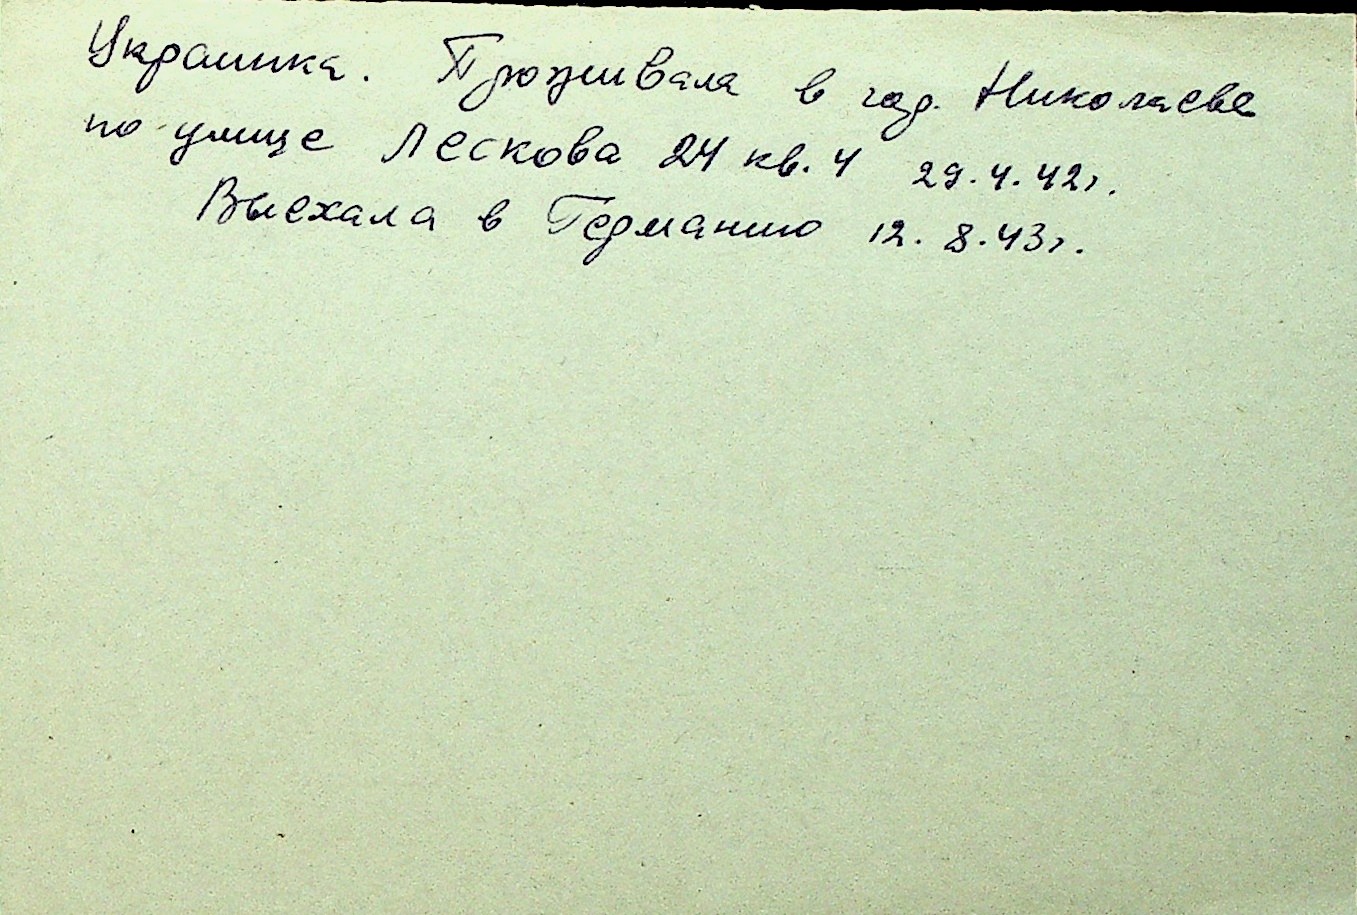 Украинка. Проживала в гор. Николаеве
по улице Лескова 24 кв. 4 29.4.42г.
Выехала в Германию 12.8.43г.